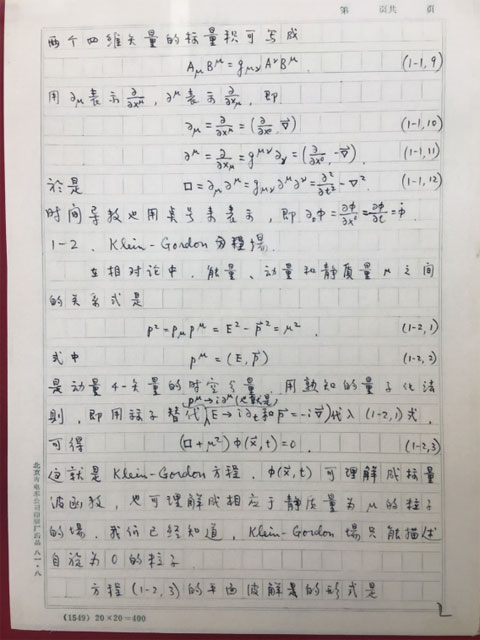 第 页共 页
两个四维矢量的标量积可写成
AμB^μ = gμνA^νB^μ. (1-1,9)
用∂μ表示∂/∂x^μ, ∂^μ表示∂/∂xμ, 即
∂μ = ∂/∂x^μ = (∂/∂x⁰, ∇⃗) (1-1,10)
∂^μ = ∂/∂xμ = g^μν∂ν = (∂/∂x⁰, -∇⃗). (1-1,11)
於是 □ = ∂μ∂^μ = gμν∂^μ∂^ν = ∂²/∂t² - ∇². (1-1,12)
时间导数也用点号来表示, 即 ∂₀φ = ∂φ/∂x⁰ = ∂φ/∂t = φ̇.
1-2、Klein-Gordon方程場.
在相对论中, 能量、动量和静质量μ之间
的关系式是
p² = pμp^μ = E² - p⃗² = μ². (1-2,1)
式中 p^μ = (E, p⃗) (1-2,2)
是动量4-矢量的时空分量. 用熟知的量子化法
p^μ→i∂^μ(也就是)
则, 即用算子替代(E→i∂t和p⃗=-i∇⃗)代入(1-2,1)式,
可得 (□+μ²)φ(x⃗,t)=0. (1-2,3)
这就是Klein-Gordon方程. φ(x⃗,t)可理解成标量
波函数, 也可理解成相应于静质量为μ的粒子
的場. 我们已经知道, Klein-Gordon場只能描述
自旋为0的粒子.
方程(1-2,3)的平面波解的形式是
(1549) 20×20=400